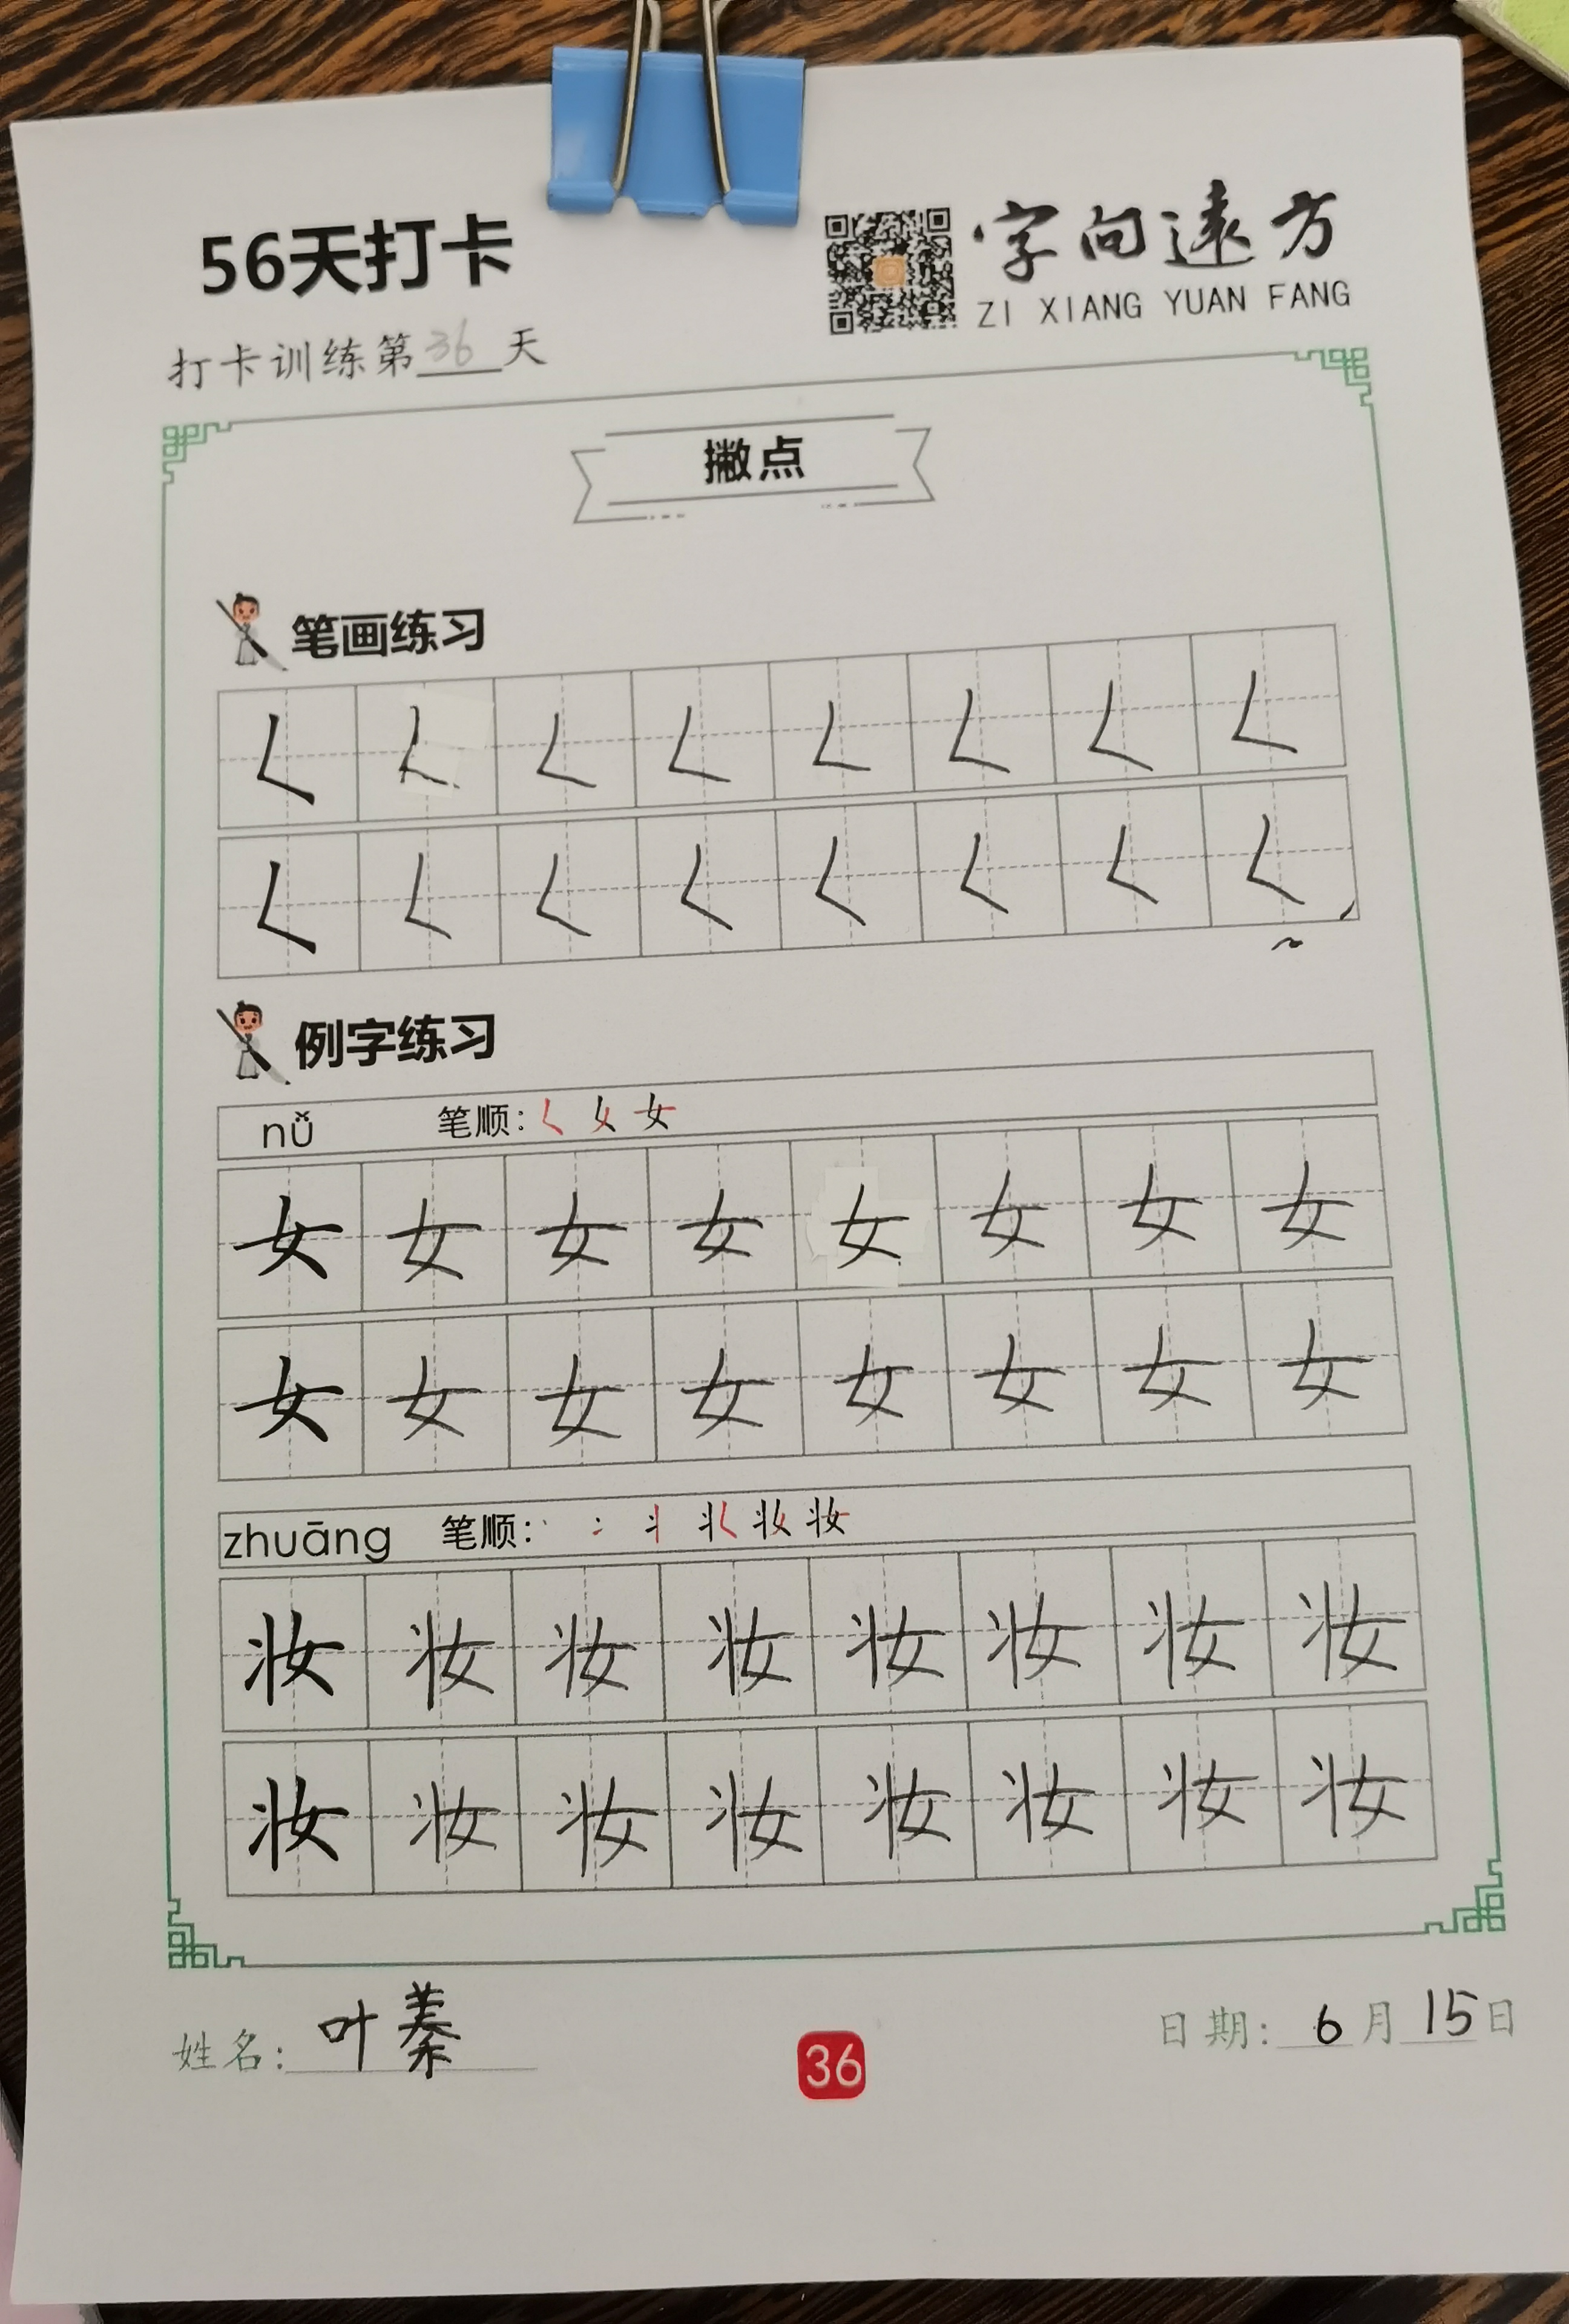 56天打卡
字向远方
ZI XIANG YUAN FANG
打卡训练第36天
撇点
笔画练习
𡿨 𡿨 𡿨 𡿨 𡿨 𡿨 𡿨 𡿨
𡿨 𡿨 𡿨 𡿨 𡿨 𡿨 𡿨 𡿨
例字练习
nǚ 笔顺:
女 女 女 女 女 女 女 女
女 女 女 女 女 女 女 女
zhuāng 笔顺:
妆 妆 妆 妆 妆 妆 妆 妆
妆 妆 妆 妆 妆 妆 妆 妆
姓名: 叶
36
日期: 6月15日